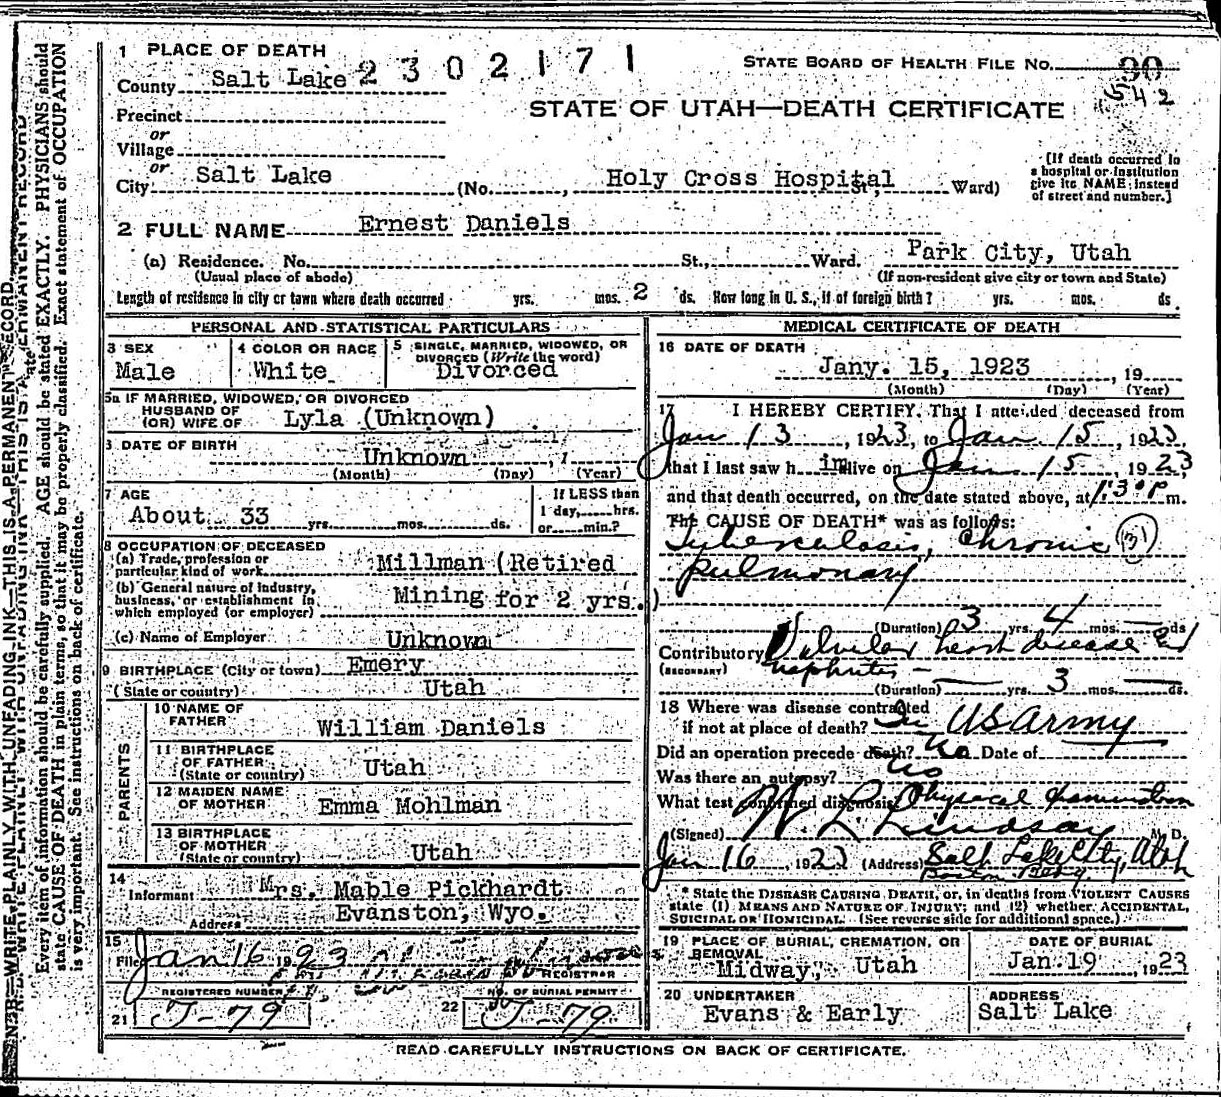 1 PLACE OF DEATH
County Salt Lake 2302171
STATE BOARD OF HEALTH FILE No. 90
542
STATE OF UTAH—DEATH CERTIFICATE
Precinct
or
Village
or
City Salt Lake (No. , Holy Cross Hospital St., Ward)
[If death occurred in
a hospital or institution
give its NAME instead
of street and number.]
2 FULL NAME Ernest Daniels
(a) Residence. No. St., Ward. Park City, Utah
(Usual place of abode) (If non-resident give city or town and State)
Length of residence in city or town where death occurred yrs. mos. 2 ds. How long in U. S., if of foreign birth? yrs. mos. ds.
PERSONAL AND STATISTICAL PARTICULARS
3 SEX
Male
4 COLOR OR RACE
White
5 SINGLE, MARRIED, WIDOWED, OR
DIVORCED (Write the word)
Divorced
5a IF MARRIED, WIDOWED, OR DIVORCED
HUSBAND OF
(OR) WIFE OF Lyla (Unknown)
DATE OF BIRTH
Unknown , 1
(Month) (Day) (Year)
7 AGE
About 33 yrs. mos. ds.
If LESS than
1 day, hrs.
or min.?
8 OCCUPATION OF DECEASED
(a) Trade, profession or
particular kind of work Millman (Retired
(b) General nature of industry,
business, or establishment in
which employed (or employer) Mining for 2 yrs.)
(c) Name of Employer Unknown
9 BIRTHPLACE (City or town) Emery
(State or country) Utah
PARENTS
10 NAME OF
FATHER William Daniels
11 BIRTHPLACE
OF FATHER
(State or country) Utah
12 MAIDEN NAME
OF MOTHER Emma Mohlman
13 BIRTHPLACE
OF MOTHER
(State or country) Utah
14
Informant Mrs. Mable Pickhardt
Address Evanston, Wyo.
15
Filed Jan 16 1923
REGISTRAR
REGISTERED NUMBER
21 J-79
NO. OF BURIAL PERMIT
22 J-79
MEDICAL CERTIFICATE OF DEATH
16 DATE OF DEATH
Jany. 15, 1923 , 19
(Month) (Day) (Year)
17 I HEREBY CERTIFY. That I attended deceased from
Jan 13, 1923, to Jan 15, 1923,
that I last saw h im alive on Jan 15, 1923
and that death occurred, on the date stated above, at 1:30 P m.
The CAUSE OF DEATH* was as follows:
Tuberculosis, Chronic (31)
pulmonary
(Duration) 3 yrs. 4 mos. — ds
Contributory Valvular heart disease and
(SECONDARY) nephritis —
(Duration) — yrs. 3 mos. — ds.
18 Where was disease contracted
if not at place of death? In US Army
Did an operation precede death? No Date of
Was there an autopsy? No
What test confirmed diagnosis? Physical Examination
(Signed) W. L. Lindsay M. D.
Jan 16 1923 (Address) Salt Lake City, Utah
Boston Bldg
* State the DISEASE CAUSING DEATH, or, in deaths from VIOLENT CAUSES
state (1) MEANS AND NATURE OF INJURY; and (2) whether ACCIDENTAL,
SUICIDAL OR HOMICIDAL. (See reverse side for additional space.)
19 PLACE OF BURIAL, CREMATION, OR
REMOVAL
Midway, Utah
DATE OF BURIAL
Jan. 19, 1923
20 UNDERTAKER
Evans & Early
ADDRESS
Salt Lake
READ CAREFULLY INSTRUCTIONS ON BACK OF CERTIFICATE.
N.B.—WRITE PLAINLY WITH UNFADING INK—THIS IS A PERMANENT RECORD
Every item of information should be carefully supplied. AGE should be stated EXACTLY. PHYSICIANS should
state CAUSE OF DEATH in plain terms, so that it may be properly classified. Exact statement of OCCUPATION
is very important. See instructions on back of certificate.